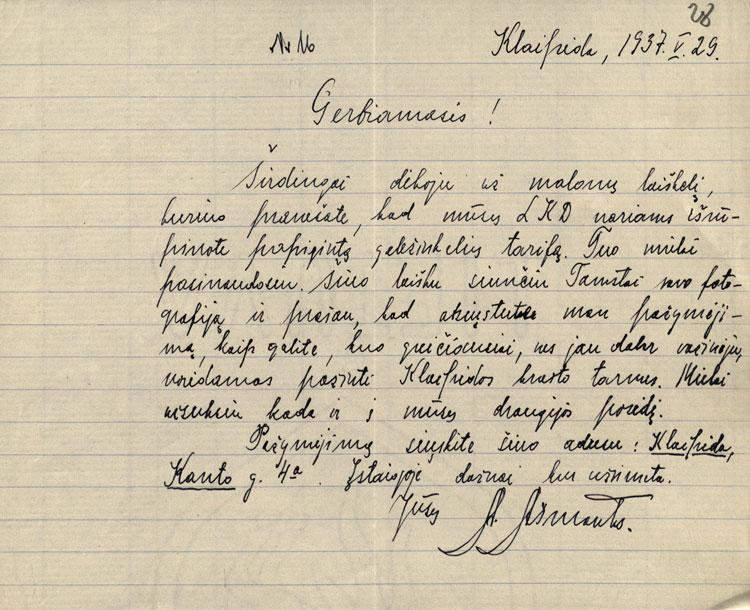 28
Nr 16
Klaipėda, 1937. V. 29.
Gerbiamasis!
Širdingai dėkoju už malonų laiškelį,
kuriuo pranešate, kad mūsų LKD nariams išrū-
pinote papigintą geležinkelių tarifą. Tuo mielai
pasinaudosiu. Šiuo laišku siunčiu Tamstai savo foto-
grafiją ir prašau, kad atsiųstute man pažymėji-
mą, kaip galite, kuo greičiausiai, nes jau dabar važinėju,
norėdamas pažinti Klaipėdos krašto tarmes. Mielai
užsuksiu kada ir į mūsų draugijos posėdį.
Pažymėjimą siųskite šiuo adresu: Klaipėda,
Kanto g. 4a. Įstaigoje dažnai kur užsimeta.
Jūsų